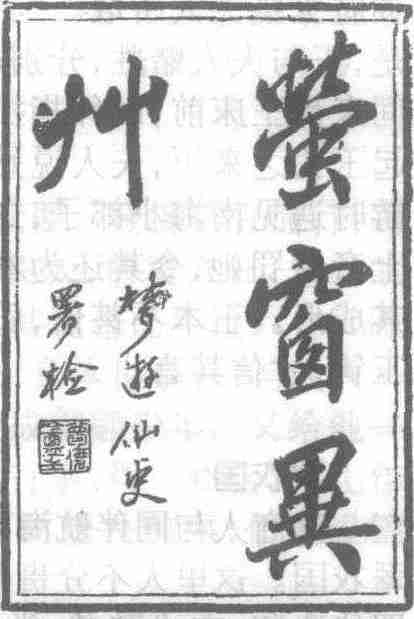 螢窗異
艸
遊仙史
署檢